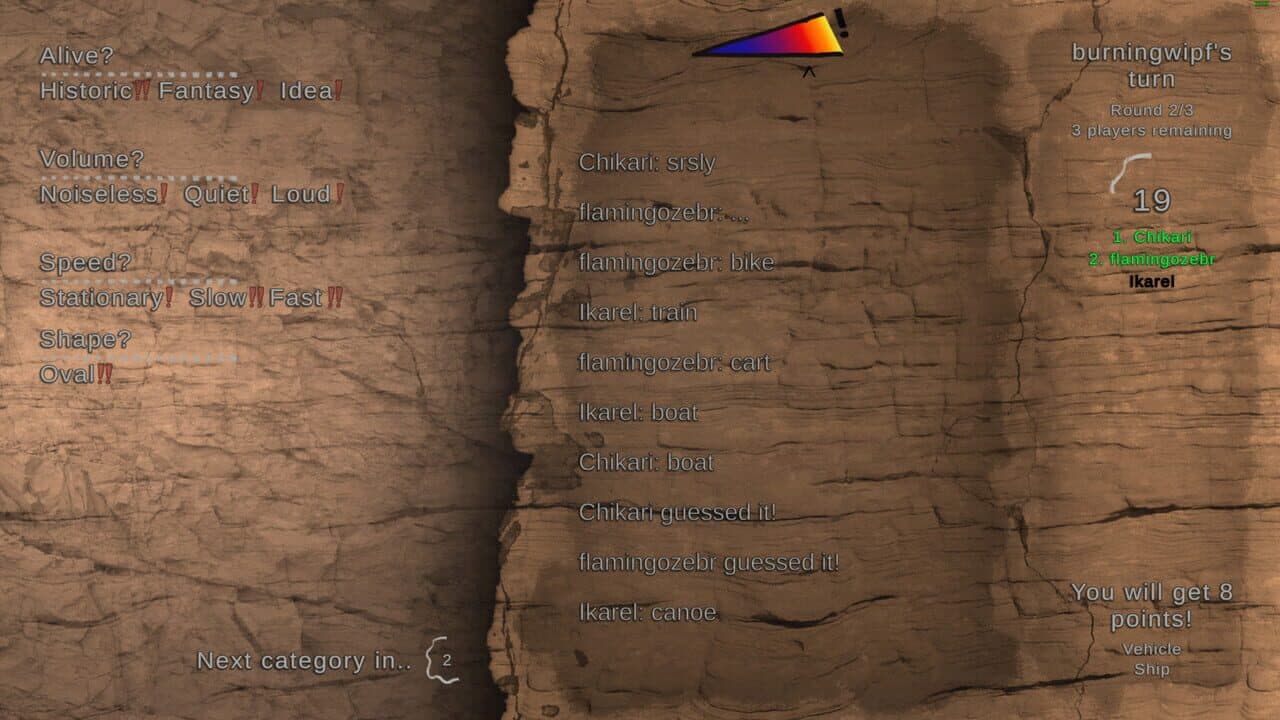 Alive?
Historic!! Fantasy! Idea!
Volume?
Noiseless! Quiet! Loud!
Speed?
Stationary! Slow!! Fast!!
Shape?
Oval!!
Next category in.. 2
!
^
Chikari: srsly
flamingozebr: ...
flamingozebr: bike
Ikarel: train
flamingozebr: cart
Ikarel: boat
Chikari: boat
Chikari guessed it!
flamingozebr guessed it!
Ikarel: canoe
burningwipf's
turn
Round 2/3
3 players remaining
19
1. Chikari
2. flamingozebr
Ikarel
You will get 8
points!
Vehicle
Ship